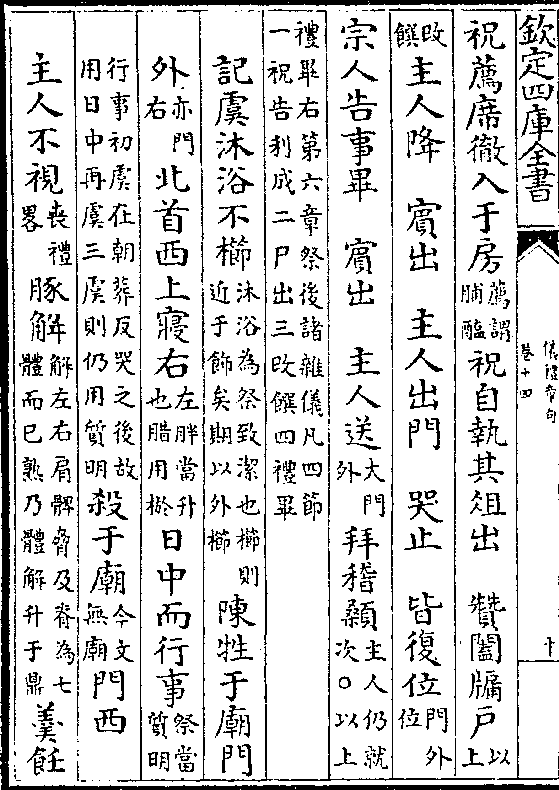 欽定四庫全書
儀禮章句
卷十四
十
祝薦席徹入于房薦謂脯醢祝自執其俎出　贊闔牖戶以上
改饌主人降　賓出　主人出門　哭止　皆復位門外位
宗人告事畢　賓出　主人送大門外拜稽顙主人仍就次○以上
禮畢右第六章祭後諸雜儀凡四節一祝告利成二尸出三改饌四禮畢
記虞沐浴不櫛沐浴為祭致潔也櫛則近于飾矣期以外櫛陳牲于廟門
外亦門右北首西上寢右左胖當升也腊用棜日中而行事祭當質明
行事初虞在朝葬反哭之後故用日中再虞三虞則仍用質明殺于廟今文無廟門西
主人不視喪禮畧豚解解左右肩髀脅及脊為七體而已熟乃體解升于鼎羹飪